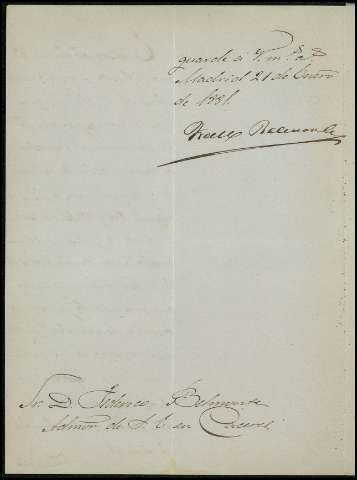 guarde á V. m.s a.s
Madrid 21 de Enero
de 1881.
Sr. D. Federico Belmonte
Admor. de L. T. en Caceres